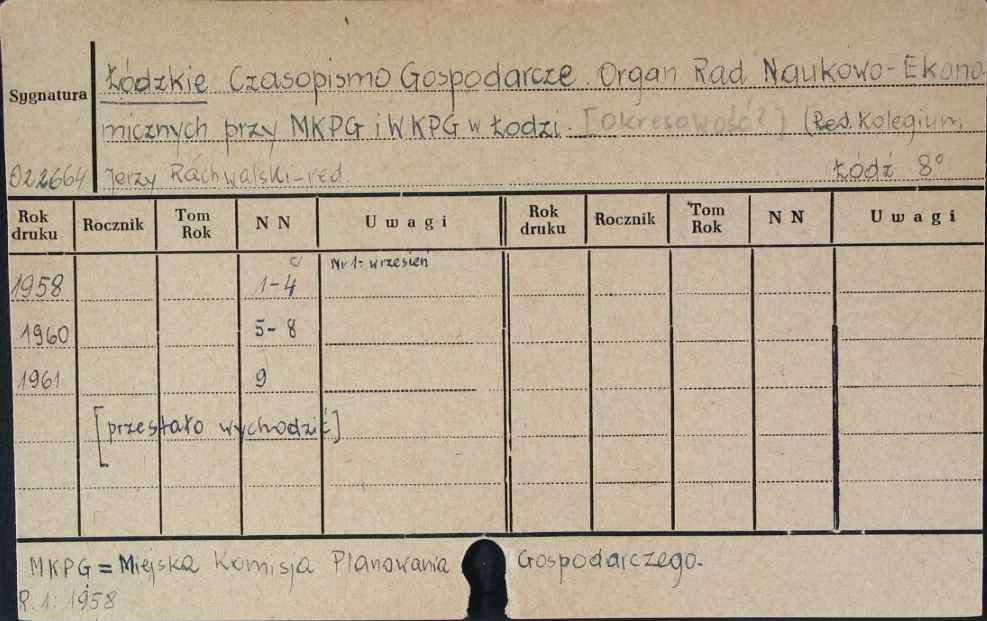 Łódzkie Czasopismo Gospodarcze. Organ Rad Naukowo-Ekono
Sygnatura
micznych przy MKPG i WKPG w Łodzi. [okresowość?] (Red. Kolegium,
022664 Jerzy Rachwalski-red. Łódź 8°
Rok druku Rocznik Tom Rok N N Uwagi Rok druku Rocznik Tom Rok N N Uwagi
Nr 1: wrzesień
1958 1-4
1960 5-8
1961 9
[przestało wychodzić]
MKPG = Miejska Komisja Planowania Gospodarczego.
R. 1: 1958